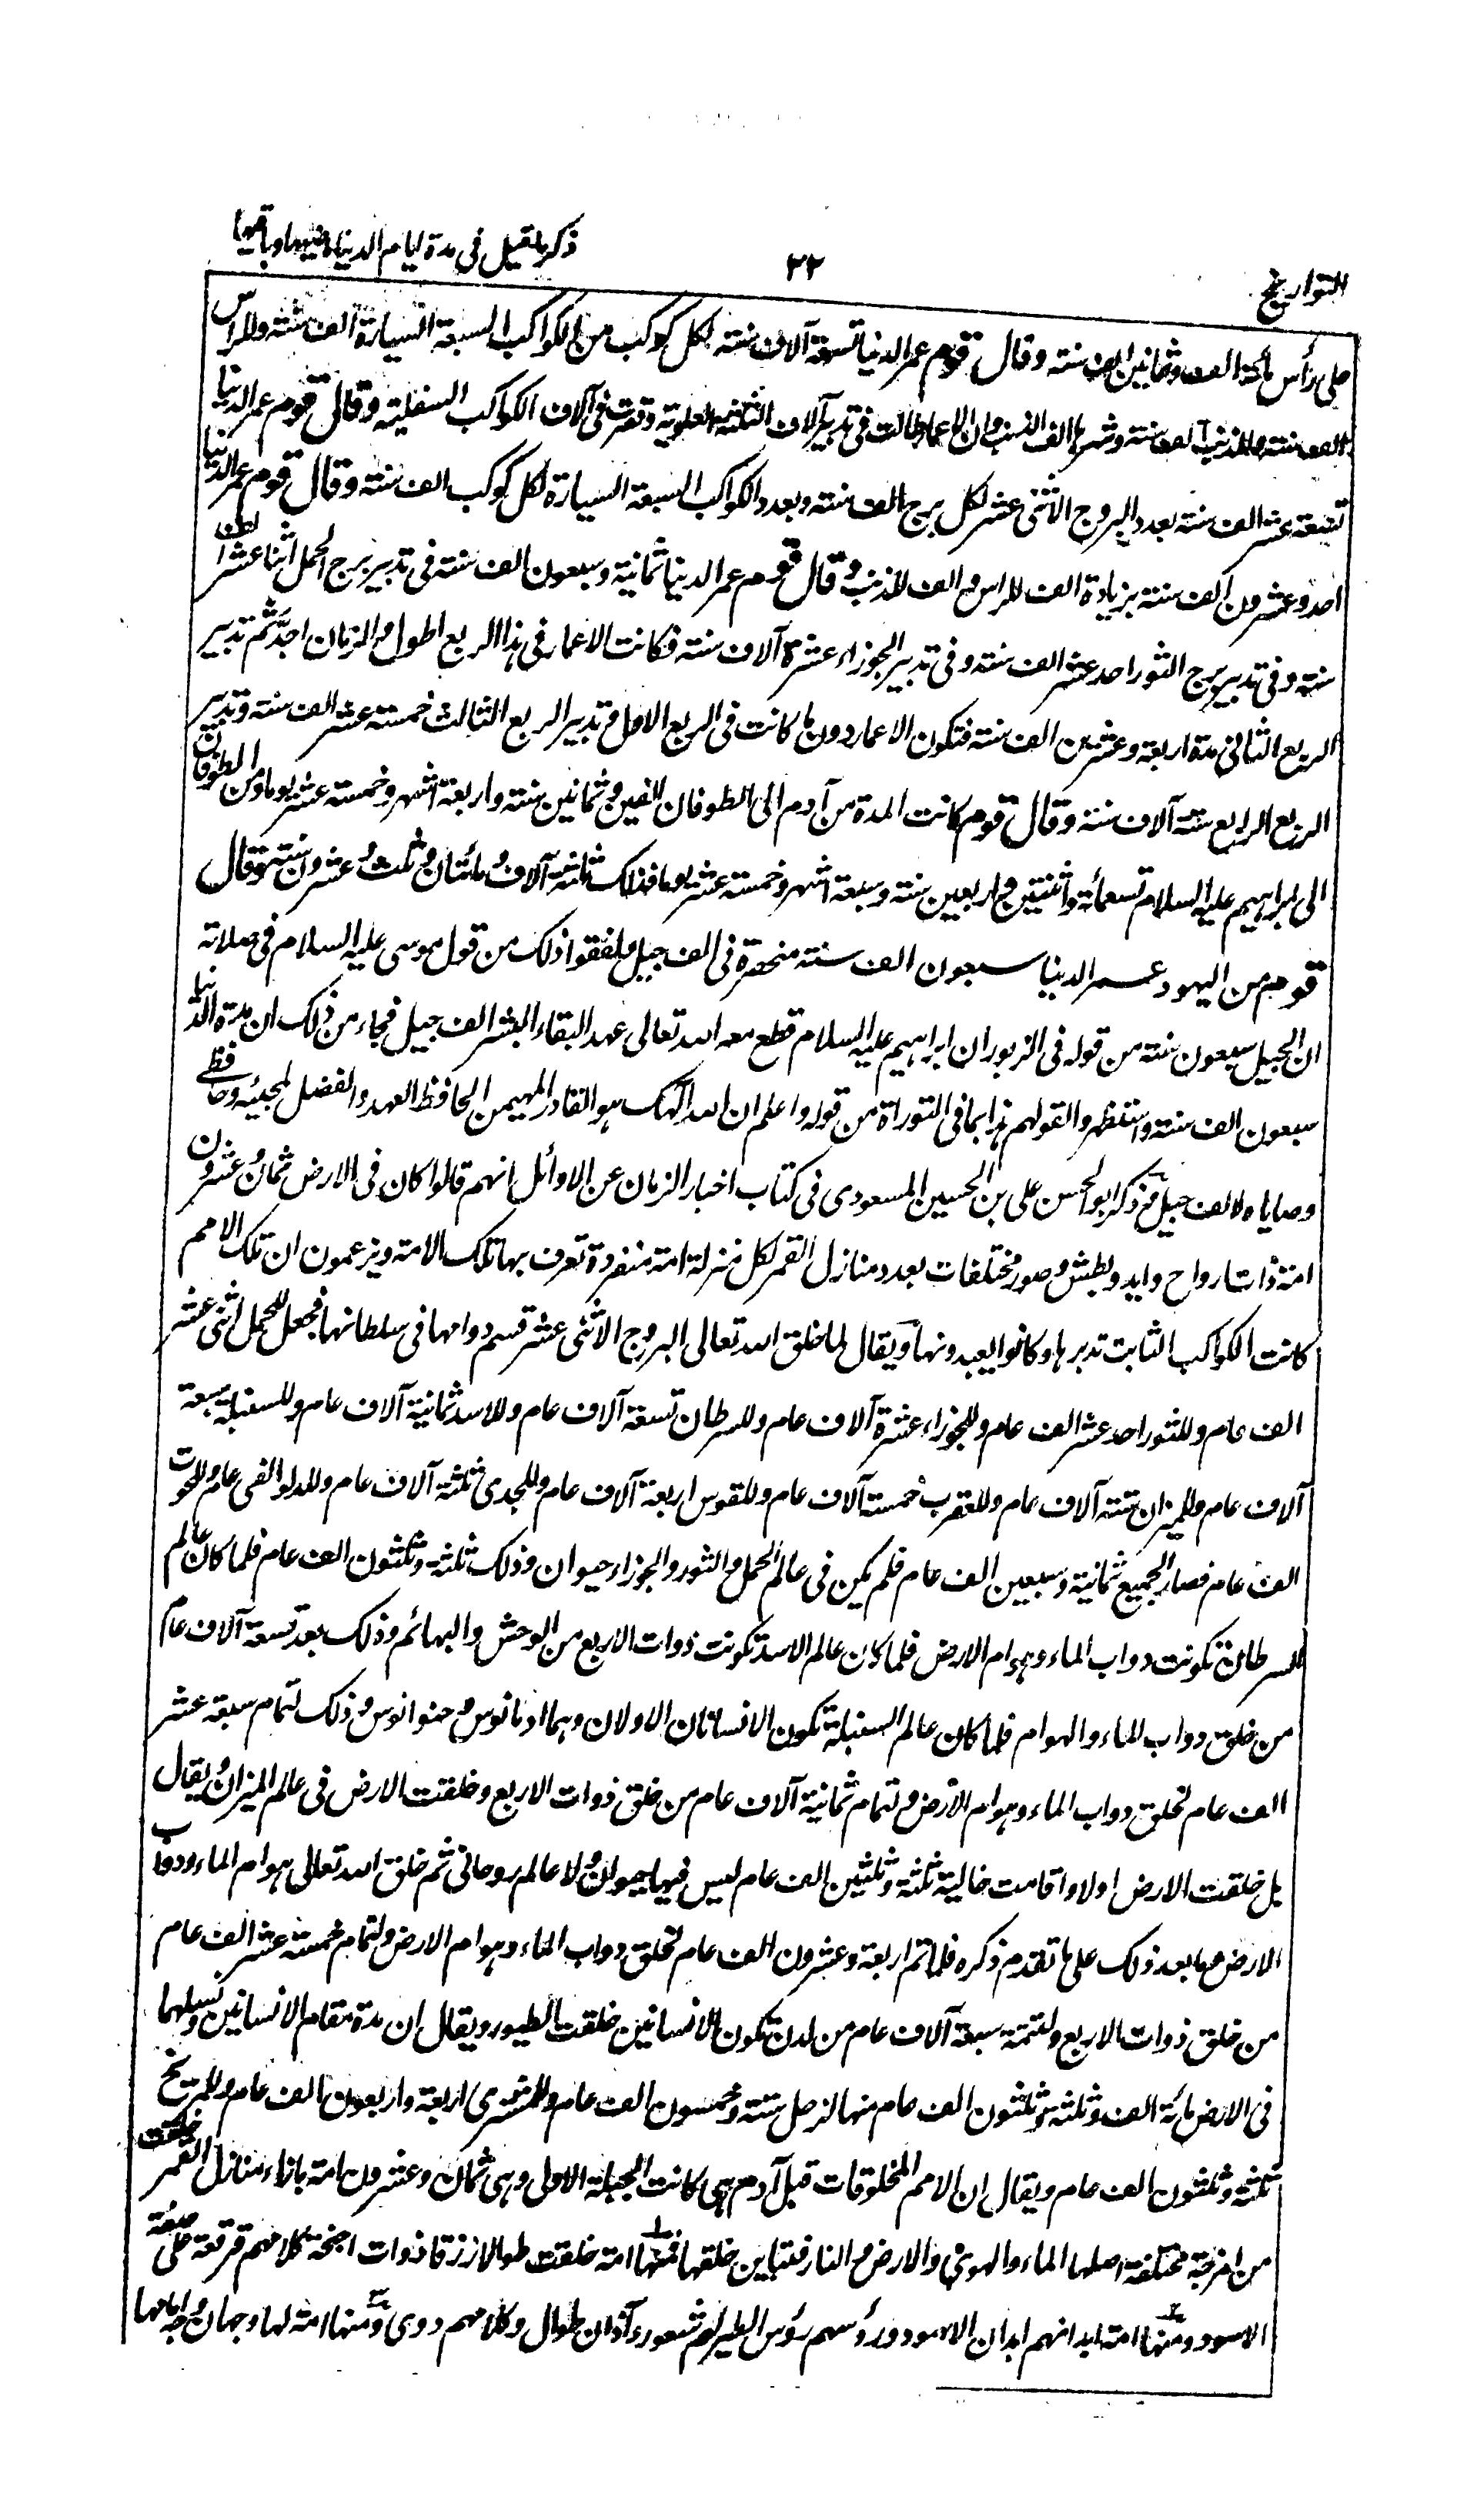 التواريخ
٣٢
ذكر ما قيل فى مدة ايام الدنيا ماضيها وباقيها
على رأس مائة الف وثمانين الف سنة وقال قوم عمر الدنيا تسعة آلاف سنة لكل كوكب من الكواكب السبعة السيارة الف سنة وللراس
الف سنة وللذنب الف سنة وشرها الف الذنب وان الاعمار طالت فى تدبير آلاف الثلثة العلوية وقصرت فى آلاف الكواكب السفلية وقال قوم عمر الدنيا
تسعة عشر الف سنة بعدد البروج الاثنى عشر لكل برج الف سنة وبعدد الكواكب السبعة السيارة لكل كوكب الف سنة وقال قوم عمر الدنيا
احد وعشرون الف سنة بزيادة الف للراس و الف للذنب وقال قوم عمر الدنيا ثمانية وسبعون الف سنة فى تدبير برج الحمل اثنا عشر الف
سنة وفى تدبير برج الثور احد عشر الف سنة وفى تدبير الجوزاء عشرة آلاف سنة فكانت الاعمار فى هذا الربع اطول و الزمان اجد ثم تدبير
الربع الثانى مدة اربعة وعشرين الف سنة فتكون الاعمار دون ما كانت فى الربع الاول و تدبير الربع الثالث خمسة عشر الف سنة وتدبير
الربع الرابع ستة آلاف سنة وقال قوم كانت المدة من آدم الى الطوفان الفين و ثمانين سنة واربعة اشهر وخمسة عشر يوما ومن الطوفان
الى ابراهيم عليه السلام تسعمأئة واثنتين و اربعين سنة وسبعة اشهر وخمسة عشر يوما فذلك ثلثة آلاف و مائتان و ثلث و عشرون سنة وقال
قوم من اليهود عمر الدنيا سبعون الف سنة منحصرة فى الف جيل و لفقوا ذلك من قول موسى عليه السلام فى صلاته
ان الجيل سبعون سنة من قوله فى الزبور ان ابراهيم عليه السلام قطع معه الله تعالى عهد البقاء البشر الف جيل فجاء من ذلك ان مدة الدنيا
سبعون الف سنة واستظهروا لقولهم هذا بما فى التوراة من قوله واعلم ان الله الهك هو القادر المهيمن الحافظ العهد والفضل لمحبيه وحافظى
وصاياه لالف جيل و ذكر ابو الحسن على بن الحسين المسعودى فى كتاب اخبار الزمان عن الاوائل انهم قالوا كان فى الارض ثمان و عشرون
امة ذات ارواح وايد وبطش و صور مختلفات بعدد منازل القمر لكل منزلة امة منفردة تعرف بها تلك الامة ويزعمون ان تلك الامم
كانت الكواكب الثابت تدبرها وكانوا يعبدونها ويقال لما خلق الله تعالى البروج الاثنى عشر قسم دوامها فى سلطانها فجعل للحمل اثنى عشر
الف عام وللثور احد عشر الف عام وللجوزاء عشرة آلاف عام وللسرطان تسعة آلاف عام وللاسد ثمانية آلاف عام وللسنبلة سبعة
آلاف عام وللميزان ستة آلاف عام وللعقرب خمسة آلاف عام وللقوس اربعة آلاف عام وللجدى ثلثة آلاف عام وللدلو الفى عام وللحوت
الف عام فصار الجميع ثمانية وسبعين الف عام فلم يكن فى عالم الحمل و الثور والجوزاء حيوان وذلك ثلثة وثلثون الف عام فلما كان عالم
السرطان تكونت دواب الماء وهوام الارض فلما كان عالم الاسد تكونت ذوات الاربع من الوحش والبهائم وذلك بعد تسعة آلاف عام
من خلق دواب الماء والهوام فلما كان عالم السنبلة تكون الانسانان الاولان وهما ادمانوس و حنوانوس و ذلك لتمام سبعة عشر
الف عام لخلق دواب الماء وهوام الارض و لتمام ثمانية آلاف عام من خلق ذوات الاربع وخلقت الارض فى عالم الميزان و يقال
بل خلقت الارض اولا واقامت خالية ثلثة وثلثين الف عام ليس فيها حيوان و لا عالم روحانى ثم خلق الله تعالى هوام الماء ودواب
الارض وما بعد ذلك على ما تقدم ذكره فلما تم اربعة وعشرون الف عام لخلق دواب الماء وهوام الارض ولتمام خمسة عشر الف عام
من خلق ذوات الاربع ولتتمة سبعة آلاف عام من لدن تكون الانسانين خلقت الطيور ويقال ان مدة مقام الانسانين ونسلهما
فى الارض مائة الف وثلثة وثلثون الف عام منها لزحل ستة وخمسون الف عام وللمشترى اربعة واربعون الف عام وللمريخ
ثلثة وثلثون الف عام ويقال ان الامم المخلوقات قبل آدم هى كانت الجبلة الاولى وهى ثمان وعشرون امة بازاء منازل القمر خلقت
من امزجة مختلفة اصلها الماء والهوى والارض و النار فتباين خلقها فمنها امة خلقت طوالا زرقا ذوات اجنحة كلامهم قرقعة على صفة
الاسود ومنها امة ابدانهم ابدان الاسود ورؤسهم رؤس الطير لهم شعور وآذان طوال وكلامهم دوى ومنها امة لها وجهان